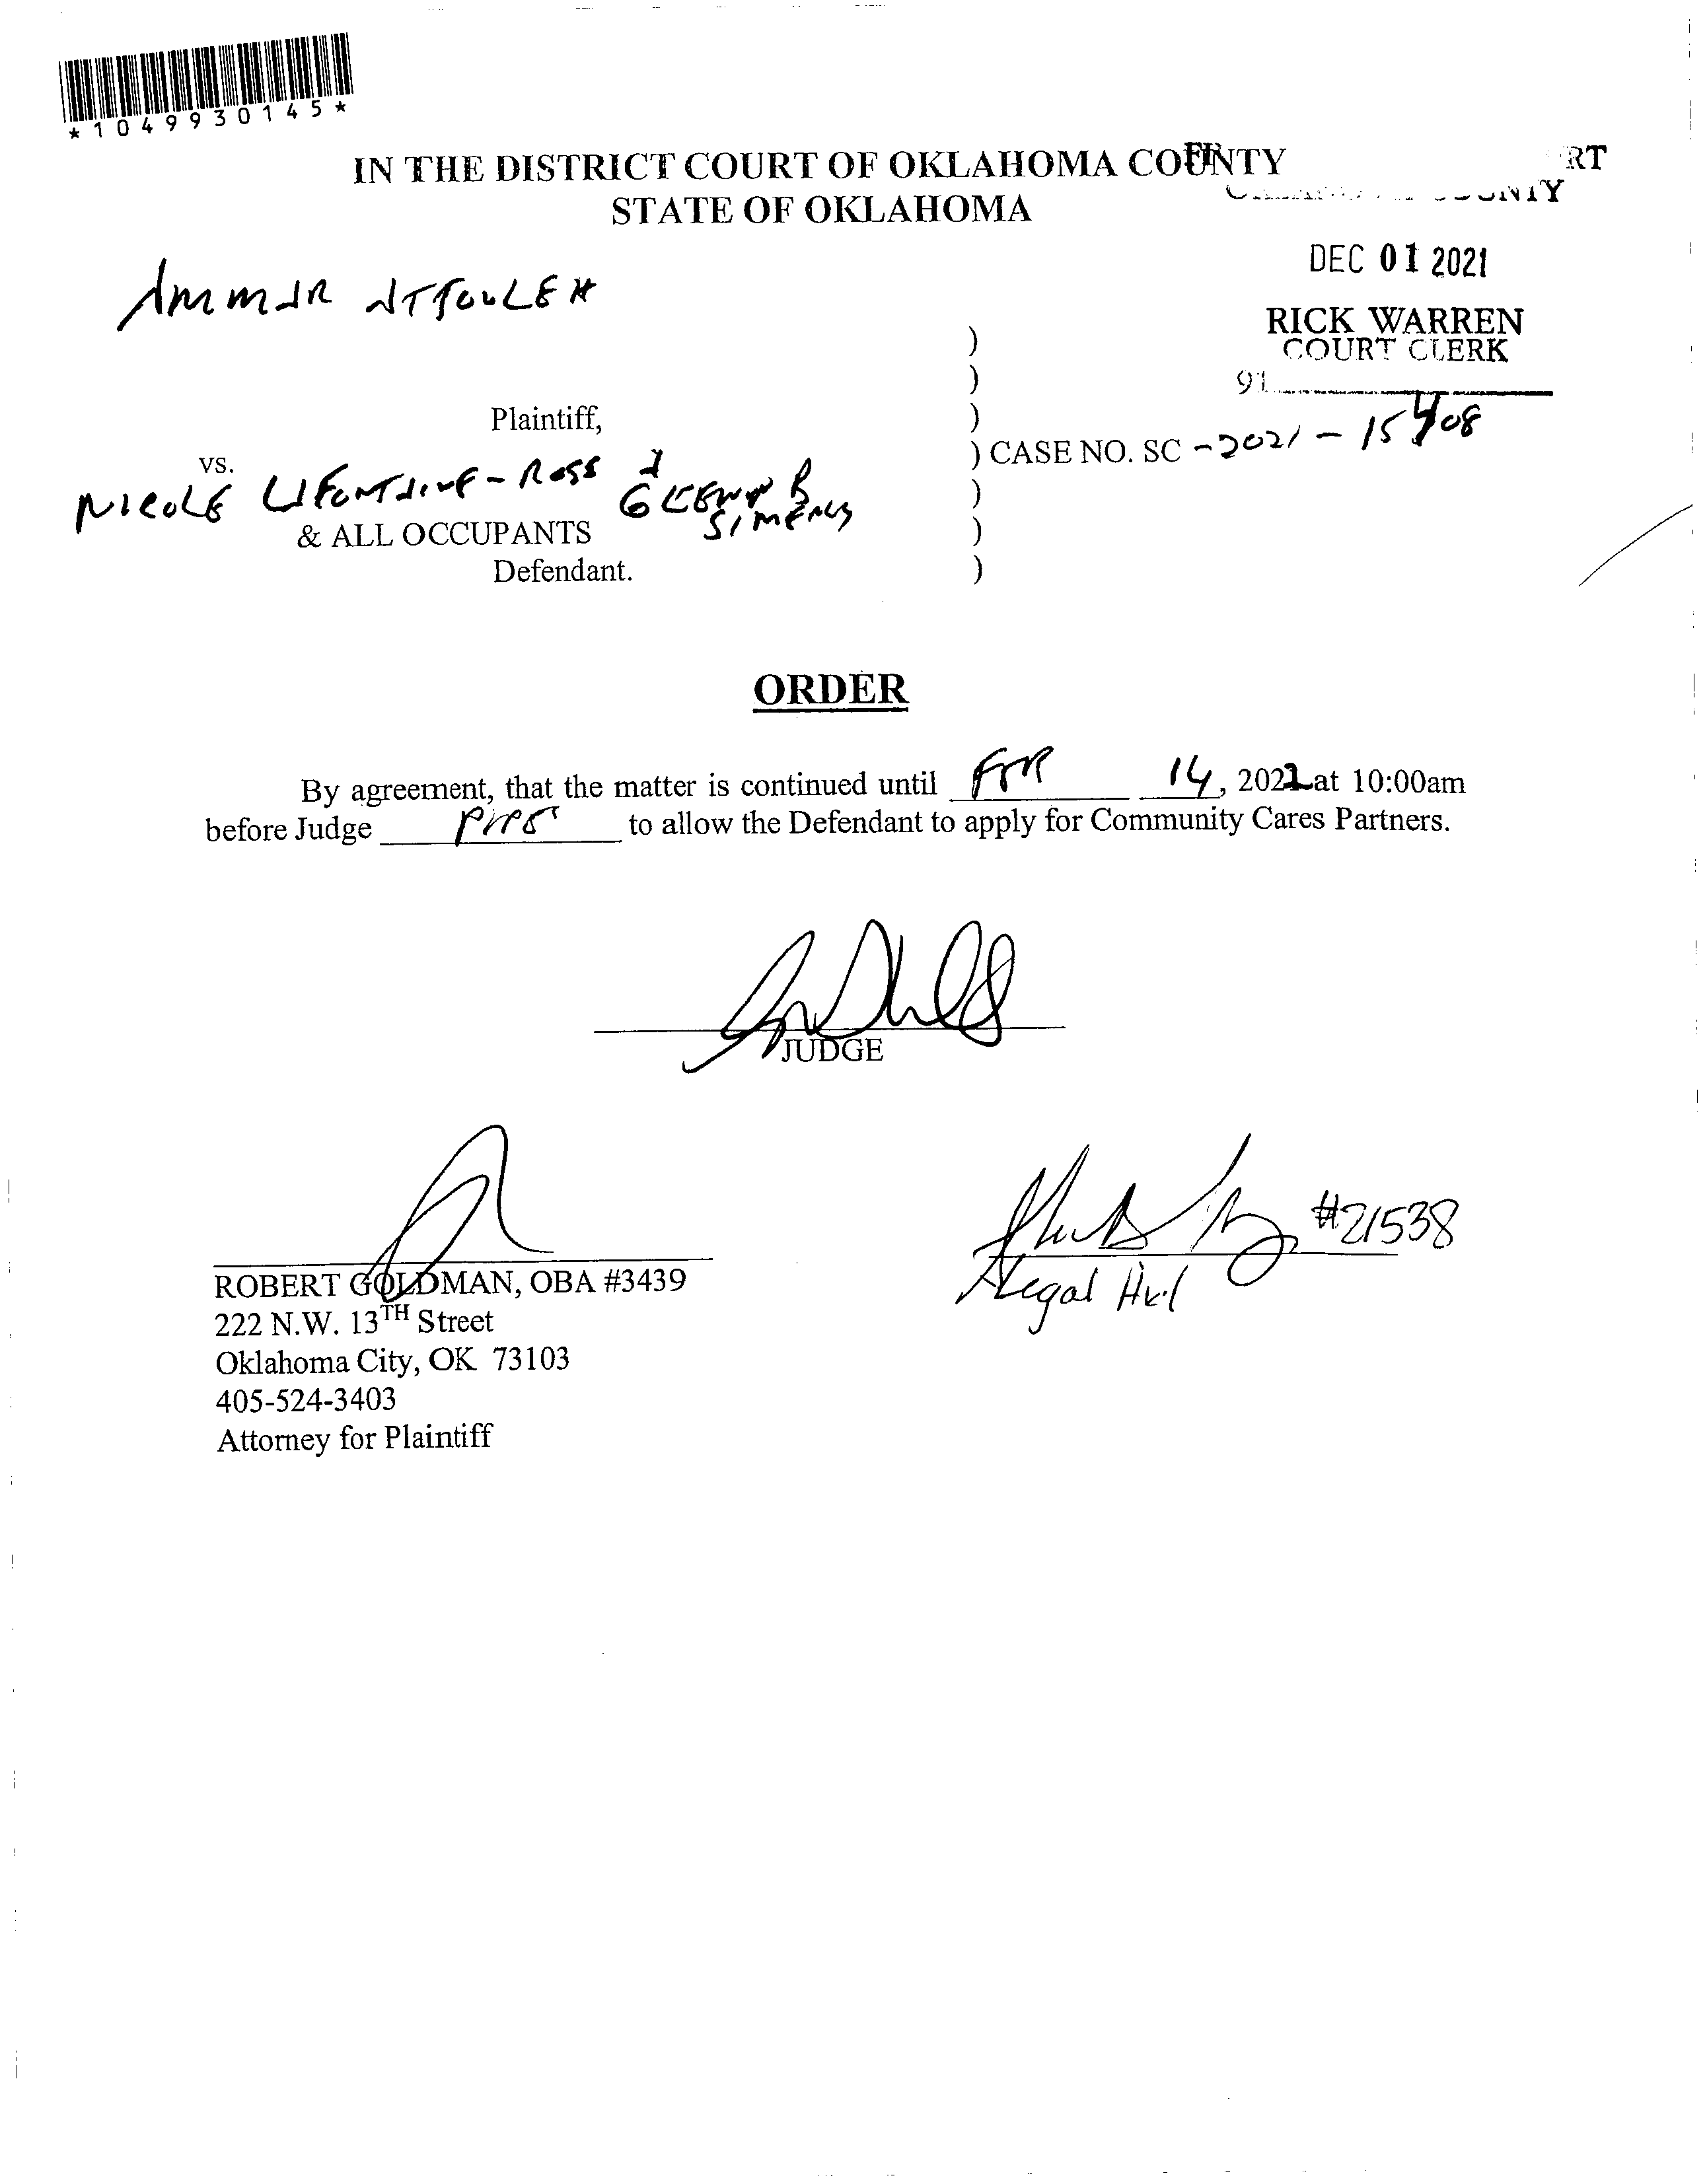 *1049930145*
IN THE DISTRICT COURT OF OKLAHOMA COUNTY
STATE OF OKLAHOMA
RT
UNTY
DEC 01 2021
RICK WARREN
COURT CLERK
91
AMMAR ATFOULEH
)
)
Plaintiff, )
vs. ) CASE NO. SC -2021-15408
NICOLE LAFONTAINE-ROSS &
GLENN B
SIMENS
)
& ALL OCCUPANTS )
Defendant. )
ORDER
By agreement, that the matter is continued until FEB 14, 2022 at 10:00am
before Judge PIPE to allow the Defendant to apply for Community Cares Partners.
JUDGE
#21538
Legal Aid
ROBERT GOLDMAN, OBA #3439
222 N.W. 13TH Street
Oklahoma City, OK 73103
405-524-3403
Attorney for Plaintiff